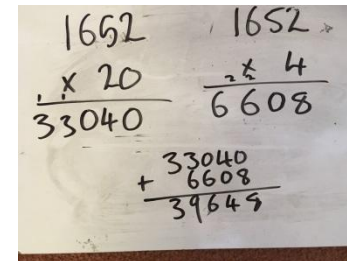 1652
x 20
33040
1652
x 4
6608
33040
+ 6608
39648